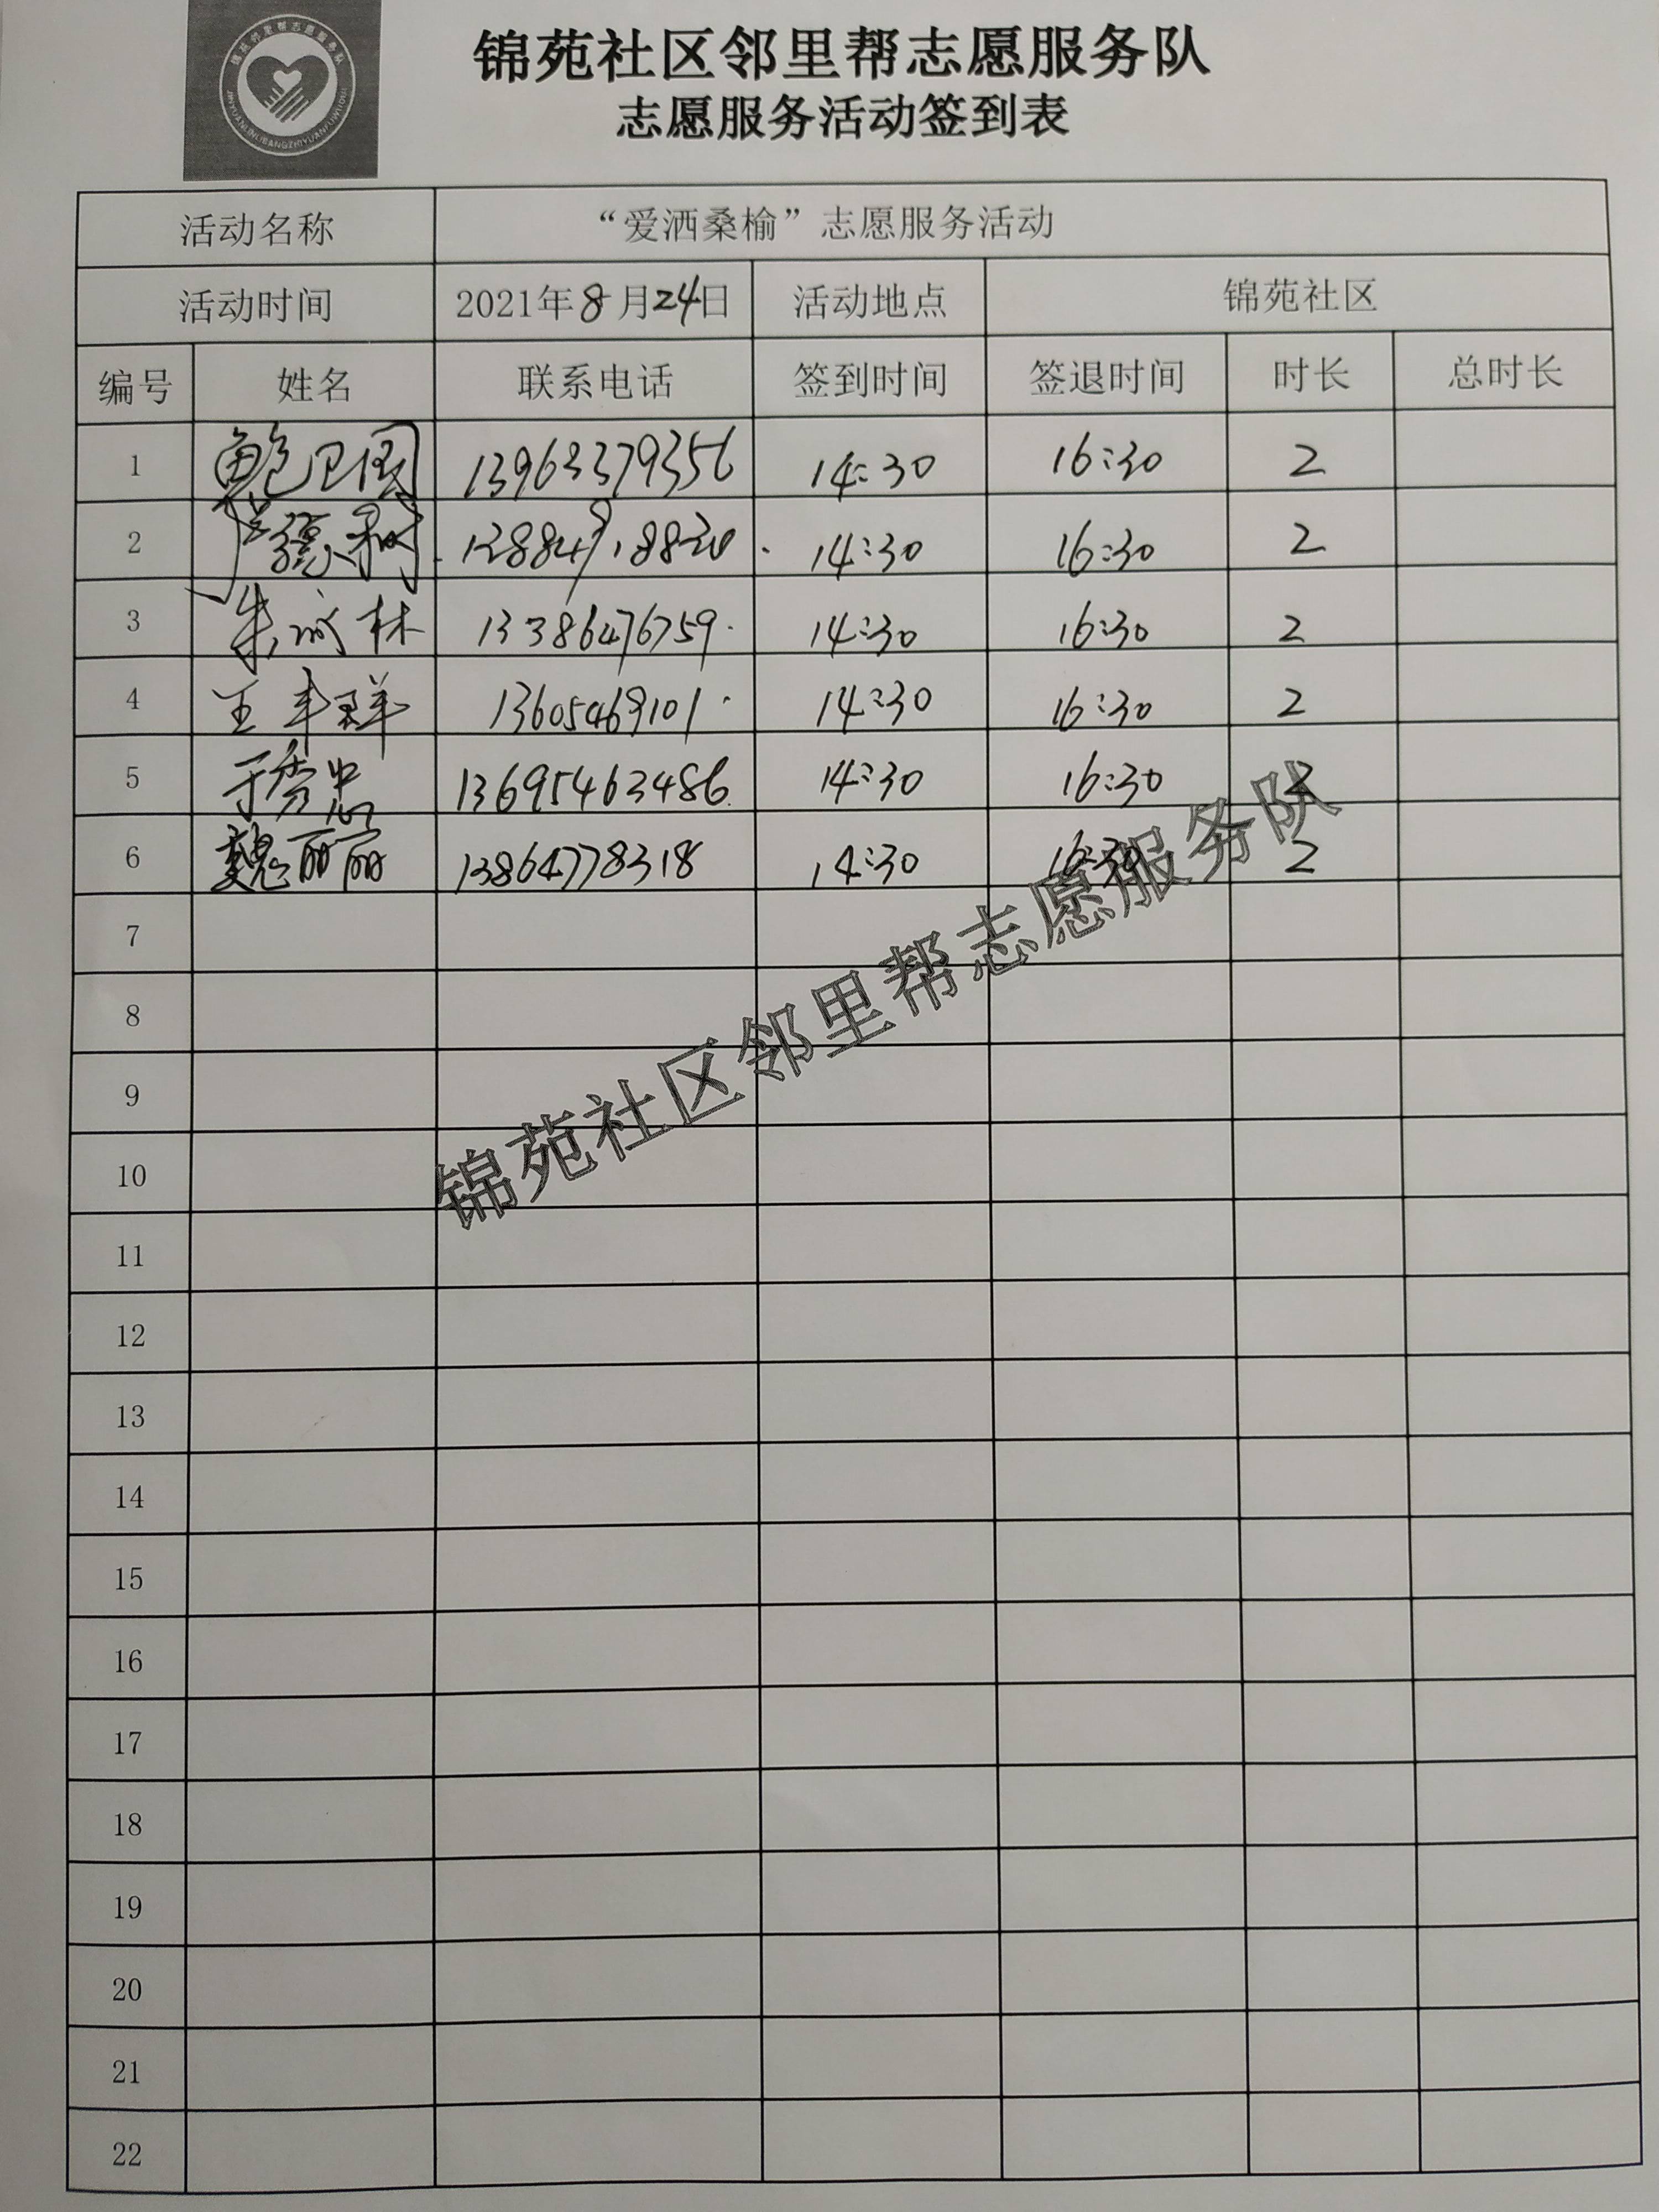 锦苑社区邻里帮志愿服务队
志愿服务活动签到表
活动名称 “爱洒桑榆”志愿服务活动
活动时间 2021年8月24日 活动地点 锦苑社区
编号 姓名 联系电话 签到时间 签退时间 时长 总时长
1 鲍卫国 13963379356 14:30 16:30 2
2 14:30 16:30 2
3 朱 林 13386476759 14:30 16:30 2
4 王丰群 13605469101 14:30 16:30 2
5 于秀忠 13695463486 14:30 16:30 2
6 魏丽丽 13864778318 14:30 16:30 2
7
8
9
10
11
12
13
14
15
16
17
18
19
20
21
22
锦苑社区邻里帮志愿服务队